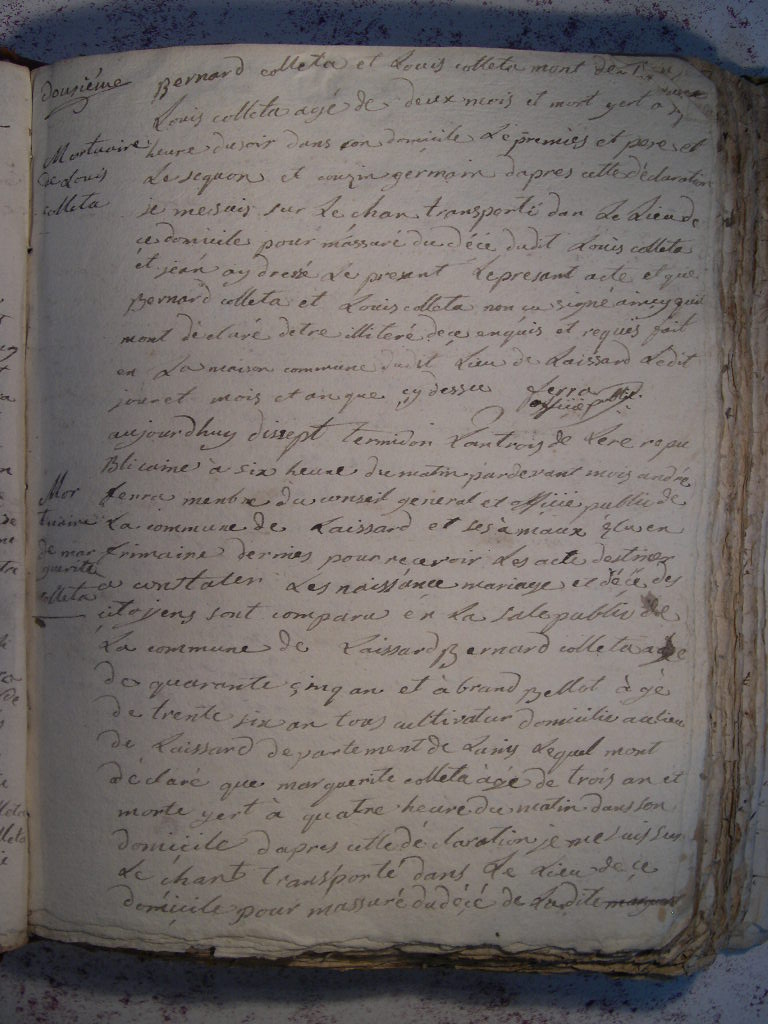 dousiéme
Bernard colleta et Louis colleta mont de
Louis colleta agé de deux mois et mort yert a
Mortuaire
de Louis
colleta
heure dusoir dans son domicile Le premies et pere et
Le sequon et couzin germain dapres cette déclaration
je mesuis sur Le chan transporté dan Le Lieu de
ce domicile pour massuré du décé dudit Louis colleta
et jean ay dressé Le presant Lepresant acte et que
Bernard colleta et Louis colleta non su signé aincy quil
mont déclaré detre illiteré de ce enquis et requis fait
en La maison commune dudit Lieu de Laissard Ledit
jour et mois et an que cy dessu ferra
officié public
aujourdhuy dissept termidon Lantrois de Lere repu
Blicaine à six heure du matin pardevant mois andré
Mor
tuaire
de mar
guerite
colleta
ferra menbre du conseil general et officié public de
La commune de Laissard et ses à maux élu en
frimaire dernies pour recevoir Les acte destinez
a constater Les naissance mariage et décé des
citoyens sont comparu en La sale public de
La commune de Laissard Bernard colleta agé
de quarante cinq an et à brand Bellot à gé
de trente six an tous cultivatur domicilié aulieu
de Laissard departement de Lequel mont
déclaré que marguerite colleta àgé de trois an et
morte yert à quatre heure du matin dans son
domicile dapres cette dé claration je mesuis sur
Le chant transporté dans Le Lieu de ce
domicile pour massuré dudécé de Ladite